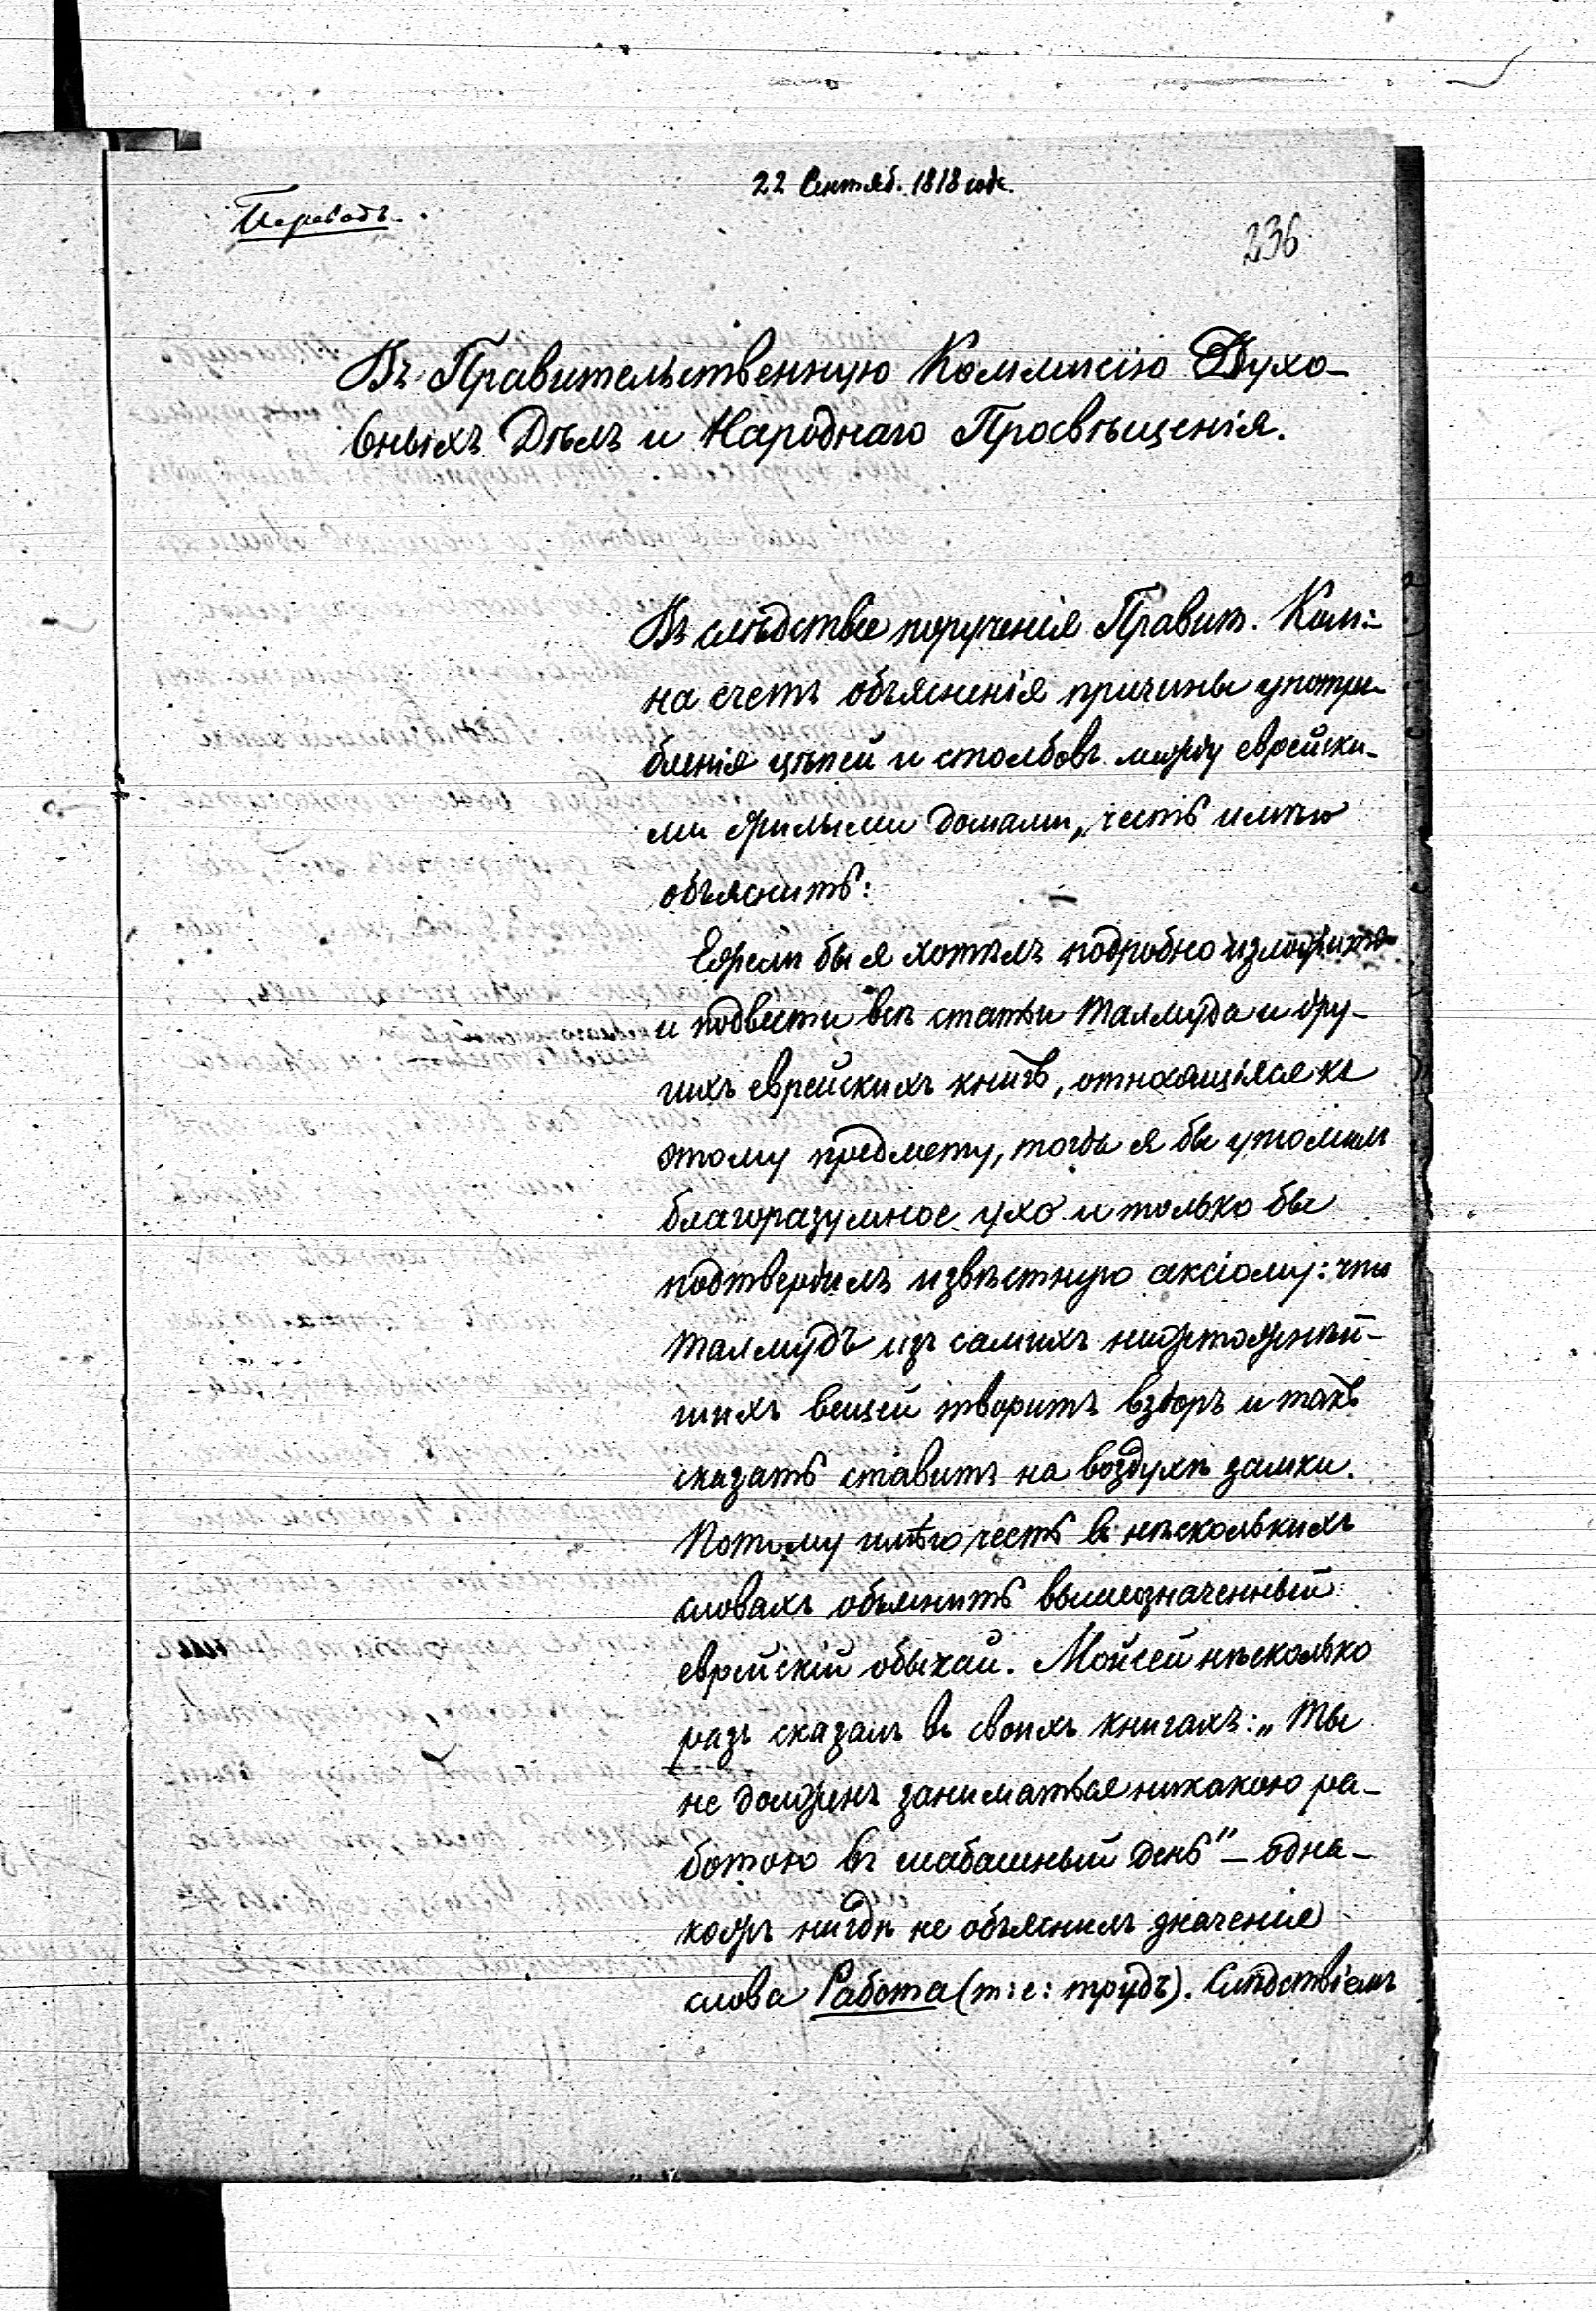 22 Сентяб. 1818 года.
Переводъ.
236
Въ Правительственную Коммисію Духо-
вныхъ Дѣлъ и Народнаго Просвѣщенія.
Въ слѣдствіе порученія Правит. Ком:
на счетъ объясненія причины употре-
бленія цѣпей и столбовъ между еврейски-
ми жилыми домами, честь имѣю
объяснить:
Ежели бы я хотѣлъ подробно изложить
и подвести всѣ статьи Талмуда и дру-
гихъ еврейскихъ книгъ, относящіяся къ
этому предмету, тогда я бы утомилъ
благоразумное ухо и только бы
подтвердилъ извѣстную аксіому: что
Талмудъ изъ самихъ ничтожнѣй-
шихъ вещей творитъ вздоръ и такъ
сказать ставитъ на воздухѣ замки.
Потому имѣю честь въ нѣсколькихъ
словахъ объяснить вышеозначенный
еврейскій обычай. Мойсей нѣсколько
разъ сказалъ въ своихъ книгахъ: „Ты
не долженъ заниматься никакою ра-
ботою въ шабашный день" — одна-
кожъ нигдѣ не объяснилъ значенія
слова Работа (т: е: трудъ). Слѣдствіемъ